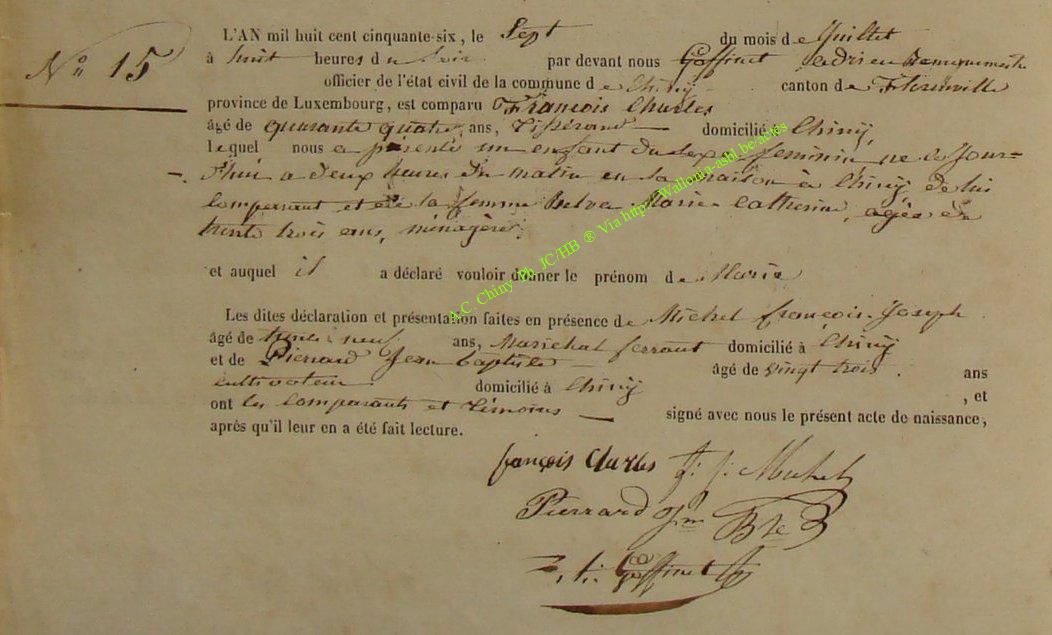 N° 15
L'AN mil huit cent cinquante-six, le Sept du mois de Juillet
à huit heures du Soir par devant nous Goffinet
officier de l'état civil de la commune de Chiny canton de Florenville
province de Luxembourg, est comparu François Charles
âgé de quarante quatre ans, Tisserand domicilié à Chiny
lequel nous a présenté un enfant du Sexe feminin né ce Jour-
d'hui a deux heures du matin en sa maison à Chiny de lui
comparant et de sa femme Belva Marie Catherine, agée de
trente trois ans, ménagère.
et auquel il a déclaré vouloir donner le prénom de Marie
Les dites déclaration et présentation faites en présence de Michel françois Joseph
âgé de trente neuf ans, Marichal ferrant domicilié à Chiny
et de Pierrard Jean baptiste âgé de vingt trois ans
cultivateur domicilié à Chiny , et
ont les comparants et Témoins signé avec nous le présent acte de naissance,
après qu'il leur en a été fait lecture.
françois Charles f. j. Michel
Pierrard Jn Bte
Goffinet
A.C. Chiny Ph. JC/HB ® Via http://Wallonia-asbl.be/actes